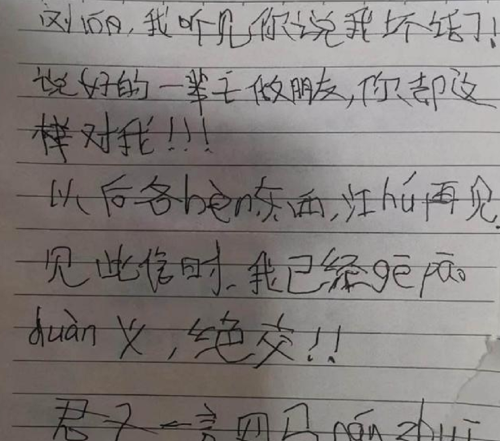 刘佰，我听见你说我坏话了！
说好的一辈子做朋友，你却这
样对我！！！
以后各bèn东西，江hú再见
见此信时，我已经gē páo
duàn义，绝交！！
君子一言四马nán zhuī